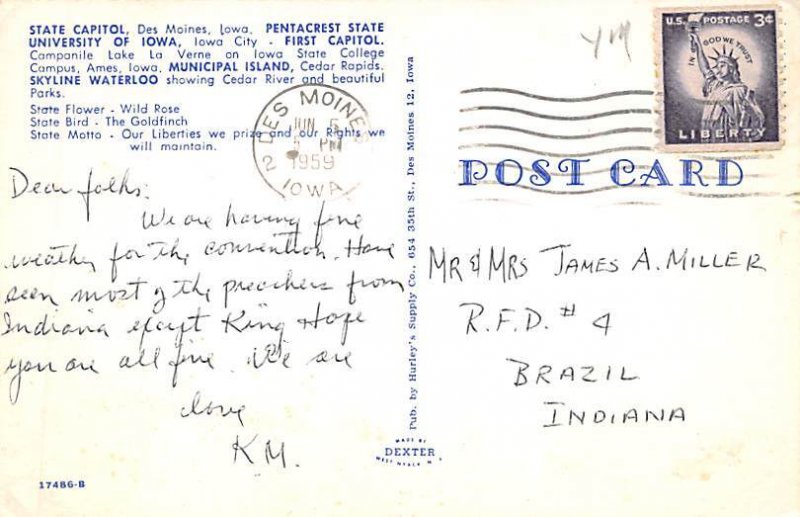 STATE CAPITOL, Des Moines, Iowa. PENTACREST STATE
UNIVERSITY OF IOWA, Iowa City - FIRST CAPITOL.
Campanile Lake La Verne on Iowa State College
Campus, Ames, Iowa. MUNICIPAL ISLAND, Cedar Rapids.
SKYLINE WATERLOO showing Cedar River and beautiful
Parks.
State Flower - Wild Rose
State Bird - The Goldfinch
State Motto - Our Liberties we prize and our Rights we
will maintain.
Dear folks:
We are having fine
weather for the convention. Have
seen most of the preachers from
Indiana except King Hope
you are all fine. We are
love
KM.
17486-B
DES MOINES
2
JUN 5
PM
1959
IOWA
Pub. by Hurley's Supply Co., 654 35th St., Des Moines 12, Iowa
MADE BY
DEXTER
WEST NYACK N.Y.
YM
U.S. POSTAGE 3¢
IN GOD WE TRUST
LIBERTY
POST CARD
MR & MRS JAMES A. MILLER
R.F.D. # 4
BRAZIL
INDIANA